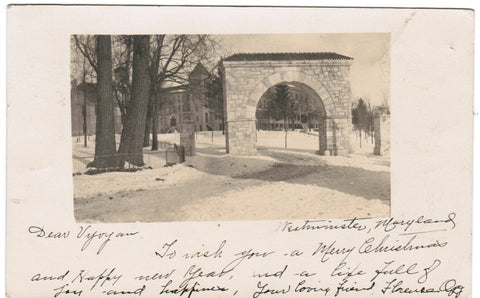 Westminster, Maryland
Dear Vyvyan
To wish you a Merry Christmas
and Happy new Year, and a life full of
joy and happiness, Your loving friend Florence